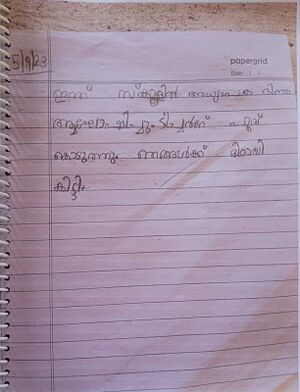 5/9/23
papergrid
Date: / /
ഇന്ന് സ്കൂളിൽ അധ്യാപക ദിനം
ആഘോഷിച്ചു ടീച്ചർക്ക്
കൊടുത്തു ഞങ്ങൾക്ക്
കിട്ടി.